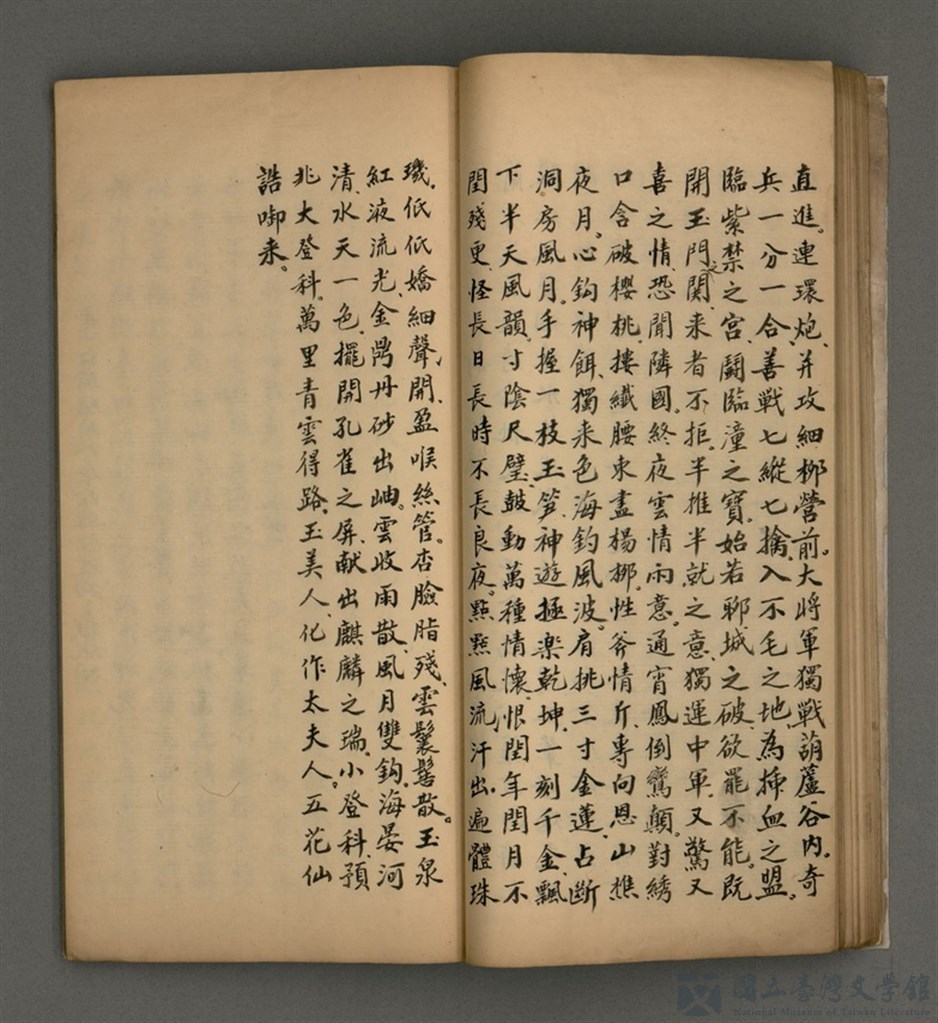 直進。連環炮、并攻細柳營前。大將軍獨戰葫蘆谷内。奇
兵一分一合、善戰七縱七擒、入不毛之地、為揷血之盟。
臨紫禁之宮、鬪臨潼之寶。始若聊城之破、欲罷不能。既
開玉門之関、来者不拒。半推半就之意、獨運中軍。又驚又
喜之情、恐聞隣國。終夜雲情雨意。通宵鳳倒鸞顛。對綉
口含破櫻桃、摟纖腰束盡楊柳。性斧情斤、專向恩山樵
夜月。心鈎神餌、獨来色海釣風波。肩挑三寸金蓮、占斷
洞房風月。手握一枝玉笋、神遊極楽乾坤。一刻千金、飄
下半天風韻。寸陰尺璧、鼓動萬種情懷、恨閏年閏月不
閏殘更、怪長日長時不長良夜。點點風流汗出、遍體珠
璣。低低嬌細聲開、盈喉絲管。杏臉脂殘、雲鬟髻散。玉泉
紅液流光、金鼎丹砂出岫。雲收雨散、風月雙鈎、海晏河
清、水天一色、擺開孔雀之屏、献出麒麟之瑞。小登科、預
兆大登科。萬里青雲得路、玉美人、化作太夫人。五花仙
誥啣来。
國立臺灣文學館
National Museum of Taiwan Literature